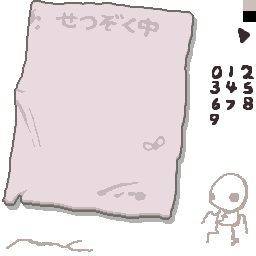 せつぞく中
0 1 2
3 4 5
6 7 8
9